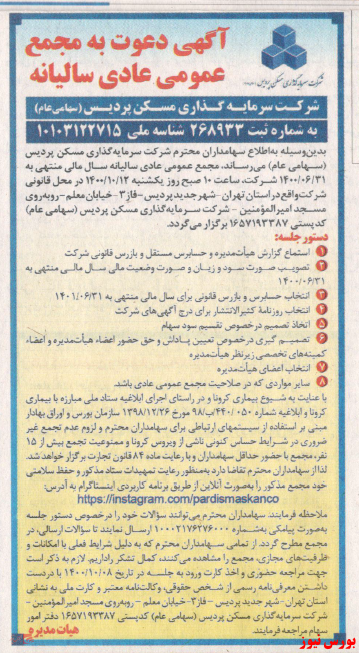 آگهی دعوت به مجمع
عمومی عادی سالیانه
شرکت سرمایه گذاری مسکن پردیس
شرکت سرمایه گذاری مسکن پردیس (سهامی عام)
به شماره ثبت ۲۶۸۹۳۳ شناسه ملی ۱۰۱۰۳۱۲۲۷۱۵
بدین‌وسیله به‌اطلاع سهامداران محترم شرکت سرمایه‌گذاری مسکن پردیس
(سهامی عام) می‌رساند، مجمع عمومی عادی سالیانه سال مالی منتهی به
۱۴۰۰/۰۶/۳۱ شرکت، ساعت ۱۰ صبح روز یکشنبه ۱۴۰۰/۱۰/۱۲ در محل قانونی
شرکت واقع در استان تهران -شهر جدید پردیس- فاز ۳- خیابان معلم -روبه‌روی
مسجد امیرالمؤمنین - شرکت سرمایه‌گذاری مسکن پردیس (سهامی عام)
کدپستی ۱۶۵۷۱۹۳۳۸۷ برگزار می‌گردد.
دستور جلسه:
۱ استماع گزارش هیأت‌مدیره و حسابرس مستقل و بازرس قانونی شرکت
۲ تصویب صورت سود و زیان و صورت وضعیت مالی سال مالی منتهی به
۱۴۰۰/۰۶/۳۱
۳ انتخاب حسابرس و بازرس قانونی برای سال مالی منتهی به ۱۴۰۱/۰۶/۳۱
۴ انتخاب روزنامهٔ کثیرالانتشار برای درج آگهی‌های شرکت
۵ اتخاذ تصمیم درخصوص تقسیم سود سهام
۶ تصمیم گیری درخصوص تعیین پاداش و حق حضور اعضاء هیأت‌مدیره و اعضاء
کمیته‌های تخصصی زیرنظر هیأت‌مدیره
۷ انتخاب اعضای هیأت‌مدیره
۸ سایر مواردی که در صلاحیت مجمع عمومی عادی باشد.
با عنایت به شیوع بیماری کرونا و در راستای اجرای ابلاغیه ستاد ملی مبارزه با بیماری
کرونا و ابلاغیه شماره ۴۴۰/۰۵۰/ب۹۸ مورخ ۱۳۹۸/۱۲/۲۶ سازمان بورس و اوراق بهادار
مبنی بر استفاده از سیستمهای ارتباطی برای سهامداران محترم و لزوم عدم تجمع غیر
ضروری در شرایط حساس کنونی ناشی از ویروس کرونا و ممنوعیت تجمع بیش از ۱۵
نفر، مجمع با حضور حداقل سهامداران و با رعایت ماده ۸۴ قانون تجارت برگزار خواهد شد.
لذا از سهامداران محترم تقاضا دارد به‌منظور رعایت تمهیدات ستاد مذکور و حفظ سلامتی
خود مجمع مذکور را به‌صورت آنلاین از طریق برنامه کاربردی اینستاگرام به آدرس:
https://instagram.com/pardismaskanco
ملاحظه فرمایند. سهامداران محترم می‌توانند سؤالات خود را درخصوص دستور جلسه
به‌صورت پیامکی به‌شماره ۱۰۰۰۲۱۷۶۲۷۶۰۰۰ ارسال نمایند تا سؤالات ارسالی، در
مجمع مطرح گردد. از تمامی سهامدارانی که به دلیل شرایط فعلی با امکانات و
ظرفیت‌های مجازی، مجمع را مشاهده می‌کنند، کمال تشکر را داریم. لازم به ذکر است
جهت مراجعه حضوری و اخذ کارت ورود به جلسه در تاریخ ۱۴۰۰/۱۰/۰۸ با دردست
داشتن معرفی‌نامه رسمی از شخص حقوقی، وکالت‌نامه معتبر و کارت ملی به نشانی
استان تهران -شهر جدید پردیس - فاز ۳- خیابان معلم - روبه‌روی مسجد امیرالمؤمنین -
شرکت سرمایه‌گذاری مسکن پردیس (سهامی عام) کدپستی ۱۶۵۷۱۹۳۳۸۷ دفتر امور
سهام مراجعه فرمایند.
هیأت مدیره
بورس نیوز